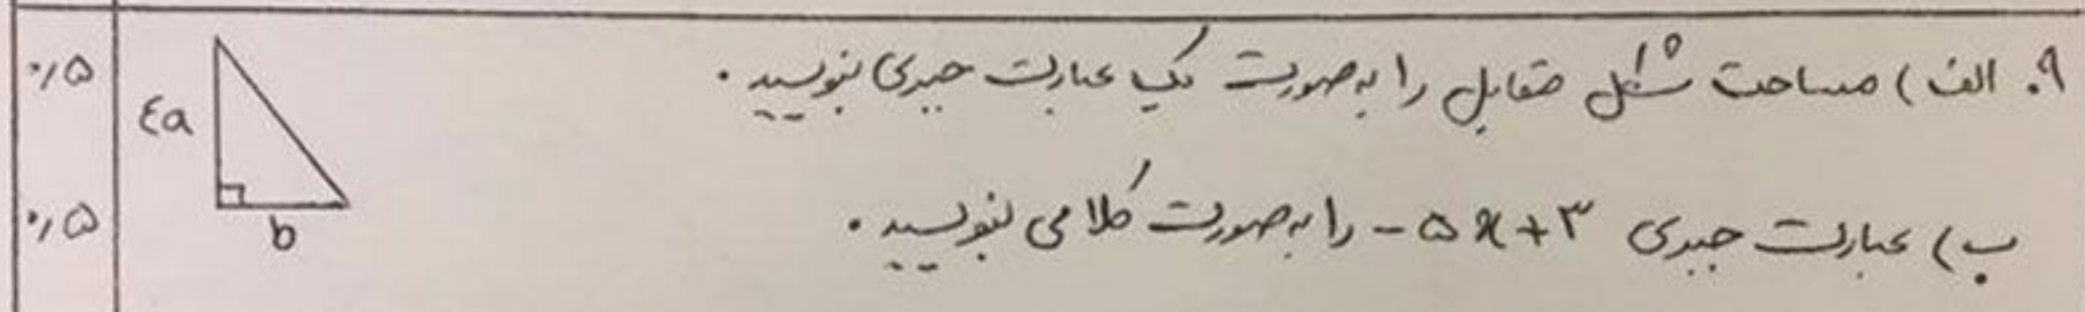 ۹. الف) مساحت شکل مقابل را به صورت یک عبارت جبری بنویسید.
۰/۵
٤a
b
ب) عبارت جبری -۵x+۳ را به صورت کلامی بنویسید.
۰/۵